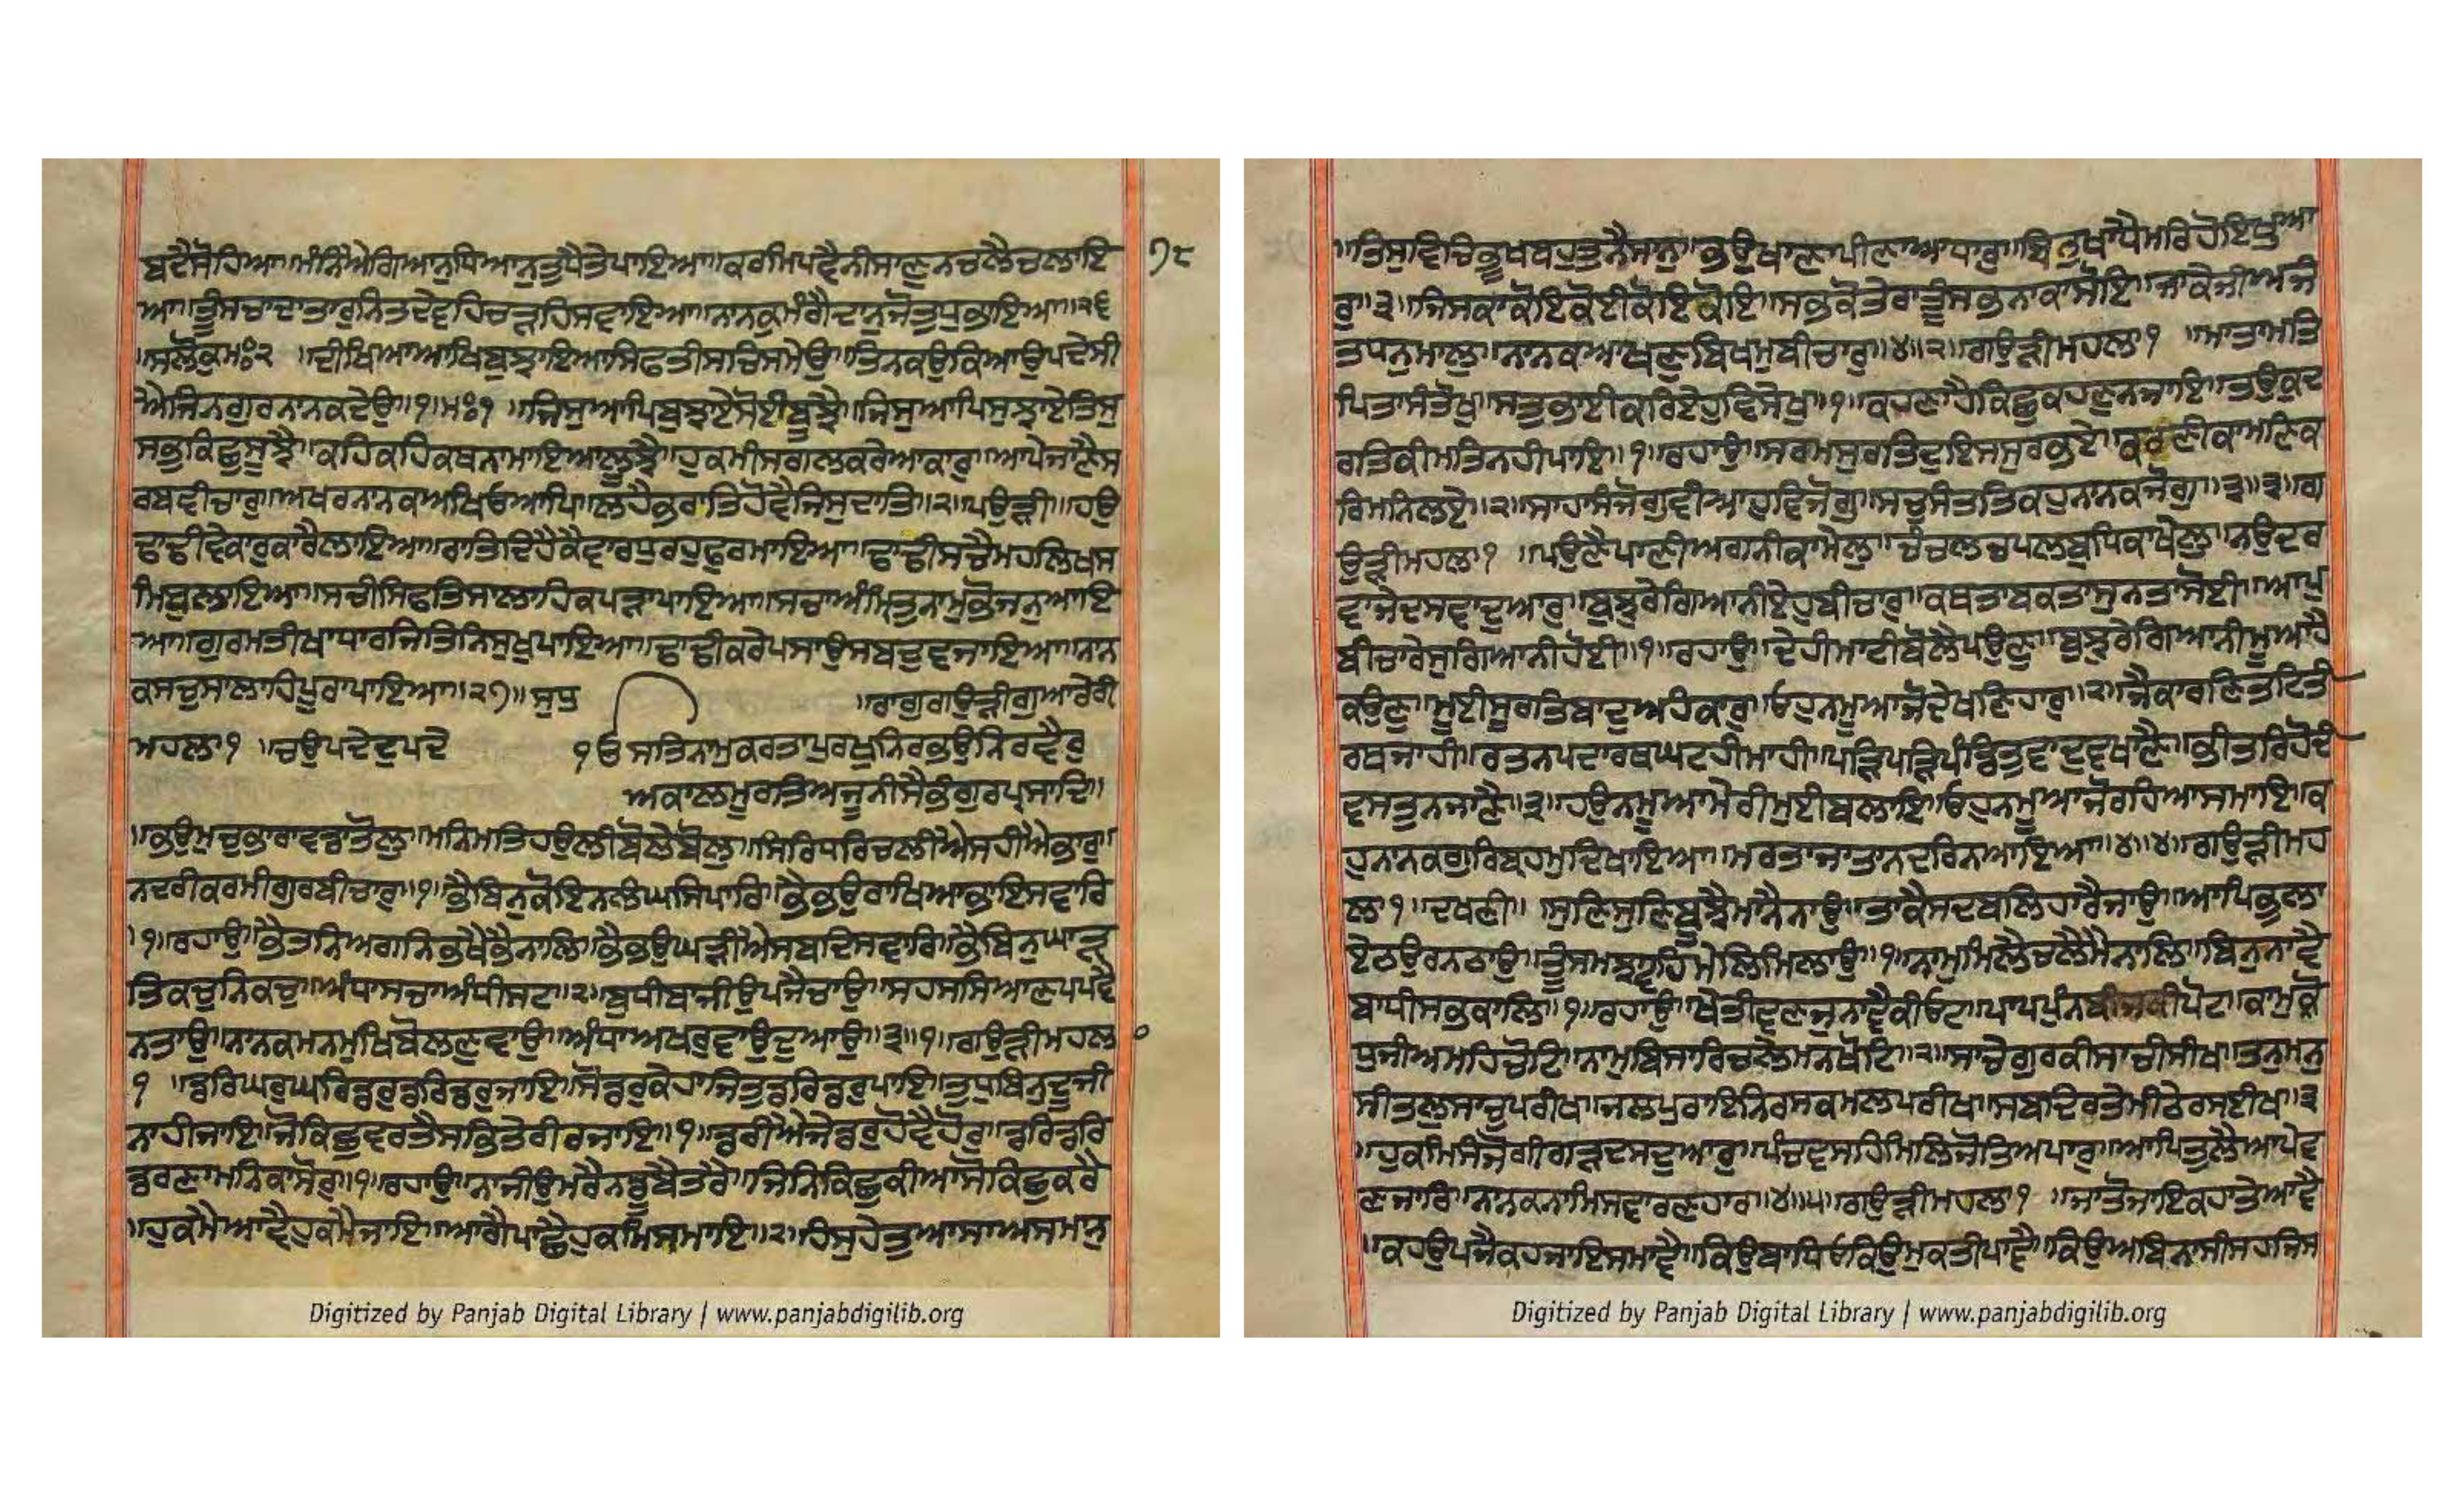 ਬਦੈਸੋਹਿਆ॥ਮੰਨਿਐਗਿਆਨੁਧਿਆਨੁਤੁਧੈਤੇਪਾਇਆ॥ਕਰਮਿਪਵੈਨੀਸਾਣੁਨਚਲੈਚਲਾਇ
ਆ॥ਤੂੰਸਚਾਦਾਤਾਰੁਨਿਤਦੇਵਹਿਚੜਹਿਸਵਾਇਆ॥ਨਾਨਕੁਮੰਗੈਦਾਨੁਜੋਤੁਧੁਭਾਇਆ॥੨੬
॥ਸਲੋਕੁਮਃ੨ ॥ਦੀਖਿਆਆਖਿਬੁਝਾਇਆਸਿਫਤੀਸਚਿਸਮੇਉ॥ਤਿਨਕਉਕਿਆਉਪਦੇਸੀ
ਐਜਿਨਗੁਰਨਾਨਕਦੇਉ॥੧॥ਮਃ੧ ॥ਜਿਸੁਆਪਿਬੁਝਾਏਸੋਈਬੂਝੈ॥ਜਿਸੁਆਪਿਸੁਝਾਏਤਿਸੁ
ਸਭੁਕਿਛੁਸੂਝੈ॥ਕਹਿਕਹਿਕਥਨਾਮਾਇਆਲੂਝੈ॥ਹੁਕਮੀਸਗਲਕਰੇਆਕਾਰੁ॥ਆਪੇਜਾਣੈਸ
ਰਬਵੀਚਾਰੁ॥ਅਖਰਨਾਨਕਅਖਿਓਆਪਿ॥ਲਹੈਭਰਾਤਿਹੋਵੈਜਿਸੁਦਾਤਿ॥੨॥ਪਉੜੀ॥ਹਉ
ਢਾਢੀਵੇਕਾਰੁਕਾਰੈਲਾਇਆ॥ਰਾਤਿਦਿਹੈਕੈਵਾਰਧੁਰਹੁਫੁਰਮਾਇਆ॥ਢਾਢੀਸਚੈਮਹਲਿਖਸ
ਮਿਬੁਲਾਇਆ॥ਸਚੀਸਿਫਤਿਸਾਲਾਹਿਕਪੜਾਪਾਇਆ॥ਸਚਾਅੰਮ੍ਰਿਤੁਨਾਮੁਭੋਜਨੁਆਇ
ਆ॥ਗੁਰਮਤੀਖਾਧਾਰਜਿਤਿਨਿਸੁਖੁਪਾਇਆ॥ਢਾਢੀਕਰੇਪਸਾਉਸਬਦੁਵਜਾਇਆ॥ਨਾਨ
ਕਸਚੁਸਾਲਾਹਿਪੂਰਾਪਾਇਆ॥੨੭॥ਸੁਧੁ ॥ਰਾਗੁਗਉੜੀਗੁਆਰੇਰੀ
ਮਹਲਾ੧ ॥ਚਉਪਦੇਦੁਪਦੇ ੧ਓ ਸਤਿਨਾਮੁਕਰਤਾਪੁਰਖੁਨਿਰਭਉਨਿਰਵੈਰੁ
ਅਕਾਲਮੂਰਤਿਅਜੂਨੀਸੈਭੰਗੁਰਪ੍ਰਸਾਦਿ॥
॥ਭਉਮੁਚੁਭਾਰਾਵਡਾਤੋਲੁ॥ਮਨਿਮਤਿਹਉਲੀਬੋਲੇਬੋਲੁ॥ਸਿਰਿਧਰਿਚਲੀਐਸਹੀਐਭਾਰੁ॥
ਨਦਰੀਕਰਮੀਗੁਰਬੀਚਾਰੁ॥੧॥ਭੈਬਿਨੁਕੋਇਨਲੰਘਸਿਪਾਰਿ॥ਭੈਭਉਰਾਖਿਆਭਾਇਸਵਾਰਿ
॥੧॥ਰਹਾਉ॥ਭੈਤਨਿਅਗਨਿਭਖੈਭੈਨਾਲਿ॥ਭੈਭਉਘੜੀਐਸਬਦਿਸਵਾਰਿ॥ਭੈਬਿਨੁਘਾੜ
ਤਿਕਚੁਨਿਕਚ॥ਅੰਧਾਸਚਾਅੰਧੀਸਟ॥੨॥ਬੁਧੀਬਾਜੀਉਪਜੈਚਾਉ॥ਸਹਸਸਿਆਣਪਪਵੈ
ਨਤਾਉ॥ਨਾਨਕਮਨਮੁਖਿਬੋਲਣੁਵਾਉ॥ਅੰਧਾਅਖਰੁਵਾਉਦੁਆਉ॥੩॥੧॥ਗਉੜੀਮਹਲਾ
੧ ॥ਡਰਿਘਰੁਘਰਿਡਰੁਡਰਿਡਰੁਜਾਇ॥ਸੋਡਰੁਕੇਹਾਜਿਤੁਡਰਿਡਰੁਪਾਇ॥ਤੁਧੁਬਿਨੁਦੂਜੀ
ਨਾਹੀਜਾਇ॥ਜੋਕਿਛੁਵਰਤੈਸਭਿਤੇਰੀਰਜਾਇ॥੧॥ਡਰੀਐਜੇਡਰੁਹੋਵੈਹੋਰੁ॥ਡਰਿਡਰਿ
ਡਰਣਾਮਨਕਾਸੋਰੁ॥੧॥ਰਹਾਉ॥ਨਾਜੀਉਮਰੈਨਡੂਬੈਤਰੈ॥ਜਿਨਿਕਿਛੁਕੀਆਸੋਕਿਛੁਕਰੈ
॥ਹੁਕਮੈਆਵੈਹੁਕਮੈਜਾਇ॥ਆਗੈਪਾਛੈਹੁਕਮਿਸਮਾਇ॥੨॥ਹੰਸੁਹੇਤੁਆਸਾਅਸਮਾਨੁ
੧੮
॥ਤਿਸੁਵਿਚਿਭੂਖਬਹੁਤੁਨੈਸਾਨੁ॥ਭਉਖਾਣਾਪੀਣਾਆਧਾਰੁ॥ਵਿਣੁਖਾਧੇਮਰਿਹੋਇਗਵਾ
ਰ॥੩॥ਜਿਸਕਾਕੋਇਕੋਈਕੋਇਕੋਇ॥ਸਭੁਕੋਤੇਰਾਤੂੰਸਭਨਾਕਾਸੋਇ॥ਜਾਕੇਜੀਅਜੰ
ਤਧਨੁਮਾਲੁ॥ਨਾਨਕਆਖਣੁਬਿਖਮੁਬੀਚਾਰੁ॥੪॥੨॥ਗਉੜੀਮਹਲਾ੧ ॥ਮਾਤਾਮਤਿ
ਪਿਤਾਸੰਤੋਖੁ॥ਸਤੁਭਾਈਕਰਿਏਹੁਵਿਸੇਖੁ॥੧॥ਕਹਣਾਹੈਕਿਛੁਕਹਣੁਨਜਾਇ॥ਤਉਕੁਦ
ਰਤਿਕੀਮਤਿਨਹੀਪਾਇ॥੧॥ਰਹਾਉ॥ਸਰਮਸੁਰਤਿਦੁਇਸਸੁਰਭਏ॥ਕਰਣੀਕਾਮਣਿਕ
ਰਿਮਨਿਲਏ॥੨॥ਸਾਹਾਸੰਜੋਗੁਵੀਆਹੁਵਿਜੋਗੁ॥ਸਚੁਸੰਤਤਿਕਹੁਨਾਨਕਜੋਗੁ॥੩॥੩॥ਗ
ਉੜੀਮਹਲਾ੧ ॥ਪਉਣੈਪਾਣੀਅਗਨੀਕਾਮੇਲੁ॥ਚੰਚਲਚਪਲਬੁਧਿਕਾਖੇਲੁ॥ਨਉਦਰ
ਵਾਜੇਦਸਵਾਦੁਆਰੁ॥ਬੁਝੁਰੇਗਿਆਨੀਏਹੁਬੀਚਾਰੁ॥ਕਥਤਾਬਕਤਾਸੁਨਤਾਸੋਈ॥ਆਪੁ
ਬੀਚਾਰੇਸੁਗਿਆਨੀਹੋਈ॥੧॥ਰਹਾਉ॥ਦੇਹੀਮਾਟੀਬੋਲੈਪਉਣੁ॥ਬੁਝੁਰੇਗਿਆਨੀਮੂਆਹੈ
ਕਉਣੁ॥ਮੂਈਸੁਰਤਿਬਾਦੁਅਹੰਕਾਰੁ॥ਓਹੁਨਮੂਆਜੋਦੇਖਣਹਾਰੁ॥੨॥ਜੈਕਾਰਣਿਤਟਿਤੀ
ਰਥਜਾਹੀ॥ਰਤਨਪਦਾਰਥਘਟਹੀਮਾਹੀ॥ਪੜਿਪੜਿਪੰਡਿਤੁਵਾਦੁਵਖਾਣੈ॥ਭੀਤਰਿਹੋਦੀ
ਵਸਤੁਨਜਾਣੈ॥੩॥ਹਉਨਮੂਆਮੇਰੀਮੁਈਬਲਾਇ॥ਓਹੁਨਮੂਆਜੋਰਹਿਆਸਮਾਇ॥ਕ
ਹੁਨਾਨਕਗੁਰਿਬ੍ਰਹਮੁਦਿਖਾਇਆ॥ਮਰਤਾਜਾਤਾਨਦਰਿਨਆਇਆ॥੪॥੪॥ਗਉੜੀਮਹ
ਲਾ੧॥ਦਖਣੀ॥ ਸੁਣਿਸੁਣਿਬੂਝੈਮਾਨੈਨਾਉ॥ਤਾਕੈਸਦਬਲਿਹਾਰੈਜਾਉ॥ਆਪਿਭੁਲਾ
ਏਠਉਰਨਠਾਉ॥ਤੂੰਸਮਝਾਵਹਿਮੇਲਿਮਿਲਾਉ॥੧॥ਨਾਮੁਮਿਲੈਚਲੈਮੈਨਾਲਿ॥ਬਿਨੁਨਾਵੈ
ਬਾਧੀਸਭਕਾਲਿ॥੧॥ਰਹਾਉ॥ਖੇਤੀਵਣਜੁਨਾਵੈਕੀਓਟ॥ਪਾਪਪੁੰਨਬੀਜਕੀਪੋਟ॥ਕਾਮੁਕ੍ਰੋ
ਧੁਜੀਅਮਹਿਚੋਟ॥ਨਾਮੁਬਿਸਾਰਿਚਲੇਮਨਖੋਟਿ॥੨॥ਸਾਚੇਗੁਰਕੀਸਾਚੀਸੀਖ॥ਤਨੁਮਨੁ
ਸੀਤਲੁਸਾਚੁਪਰੀਖ॥ਜਲਪੁਰਾਇਨਿਰਸਕਮਲਪਰੀਖ॥ਸਬਦਿਰਤੇਮੀਠੇਰਸਈਖ॥੩
॥ਹੁਕਮਿਸੰਜੋਗੀਗੜਦਸਦੁਆਰੁ॥ਪੰਚਵਸਹਿਮਿਲਿਜੋਤਿਅਪਾਰੁ॥ਆਪਿਤੁਲੈਆਪੇਵ
ਣਜਾਰਿ॥ਨਾਨਕਨਾਮਿਸਵਾਰਣਹਾਰ॥੪॥੫॥ਗਉੜੀਮਹਲਾ੧ ॥ਜਾਤੋਜਾਇਕਹਾਤੇਆਵੈ
॥ਕਹਉਪਜੈਕਹਜਾਇਸਮਾਵੈ॥ਕਿਉਬਾਧਿਓਕਿਉਮੁਕਤੀਪਾਵੈ॥ਕਿਉਅਬਿਨਾਸੀਸਹਜਿਸ
Digitized by Panjab Digital Library | www.panjabdigilib.org
Digitized by Panjab Digital Library | www.panjabdigilib.org